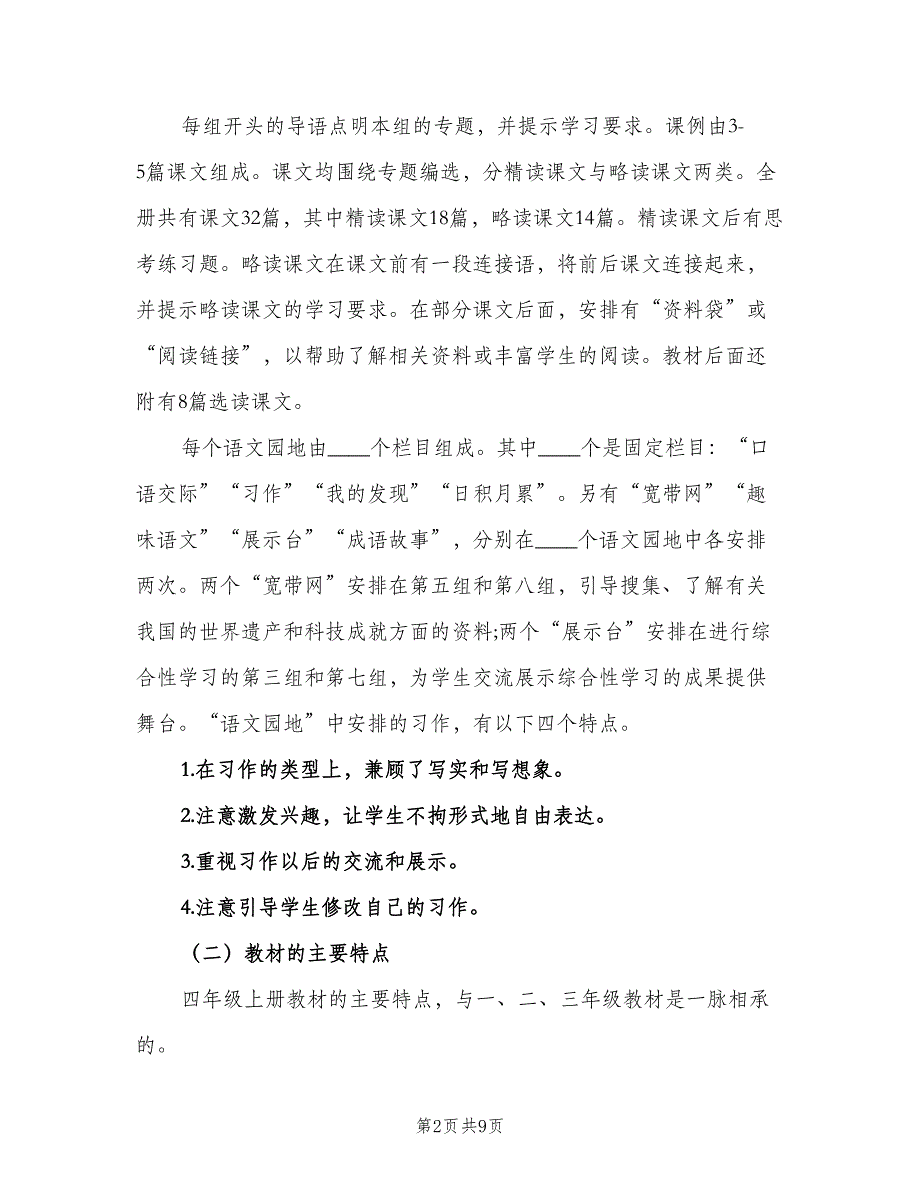 每组开头的导语点明本组的专题，并提示学习要求。课例由3-
5篇课文组成。课文均围绕专题编选，分精读课文与略读课文两类。全
册共有课文32篇，其中精读课文18篇，略读课文14篇。精读课文后有思
考练习题。略读课文在课文前有一段连接语，将前后课文连接起来，
并提示略读课文的学习要求。在部分课文后面，安排有“资料袋”或
“阅读链接”，以帮助了解相关资料或丰富学生的阅读。教材后面还
附有8篇选读课文。
每个语文园地由____个栏目组成。其中____个是固定栏目：“口
语交际”“习作”“我的发现”“日积月累”。另有“宽带网”“趣
味语文”“展示台”“成语故事”，分别在____个语文园地中各安排
两次。两个“宽带网”安排在第五组和第八组，引导搜集、了解有关
我国的世界遗产和科技成就方面的资料;两个“展示台”安排在进行综
合性学习的第三组和第七组，为学生交流展示综合性学习的成果提供
舞台。“语文园地”中安排的习作，有以下四个特点。
1.在习作的类型上，兼顾了写实和写想象。
2.注意激发兴趣，让学生不拘形式地自由表达。
3.重视习作以后的交流和展示。
4.注意引导学生修改自己的习作。
（二）教材的主要特点
四年级上册教材的主要特点，与一、二、三年级教材是一脉相承
的。
第2页 共9页